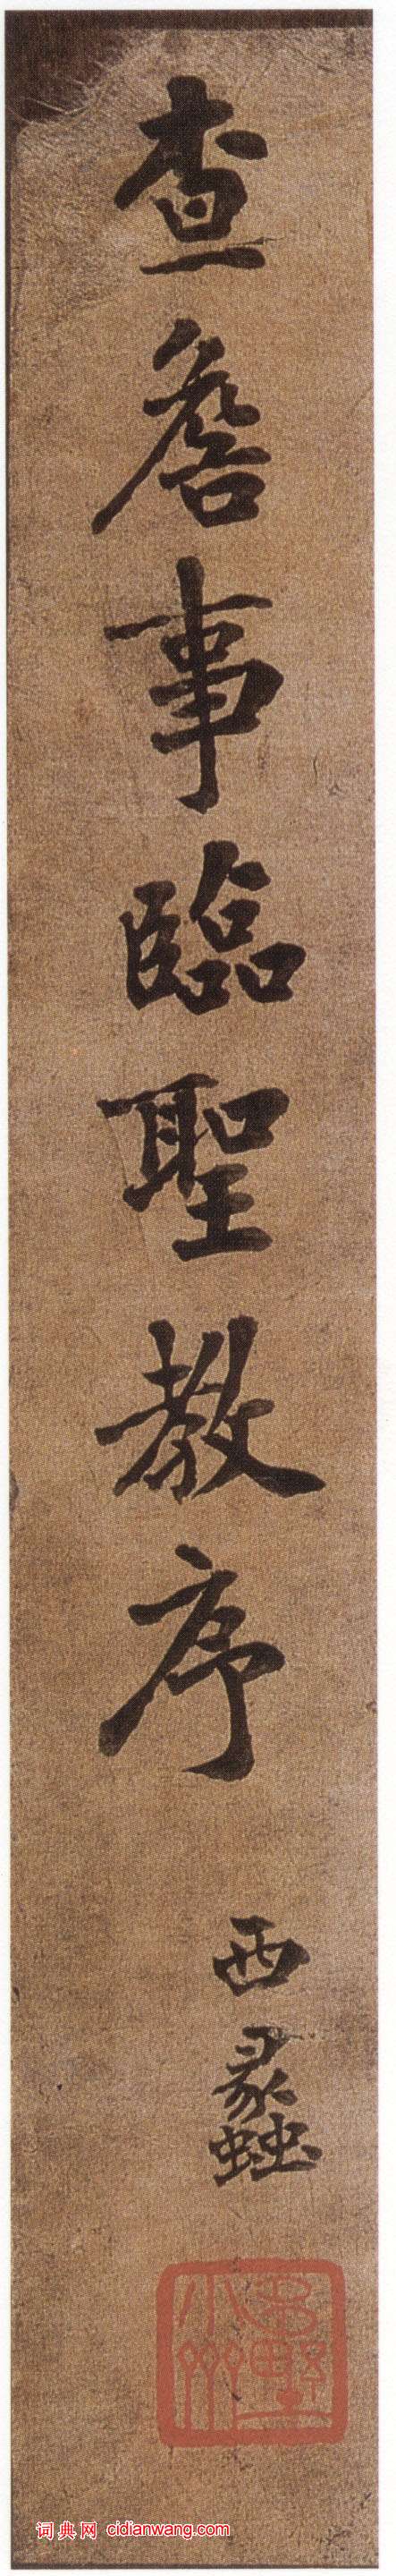 查詹事臨聖教序
西蠡
词典网 cidianwang.com